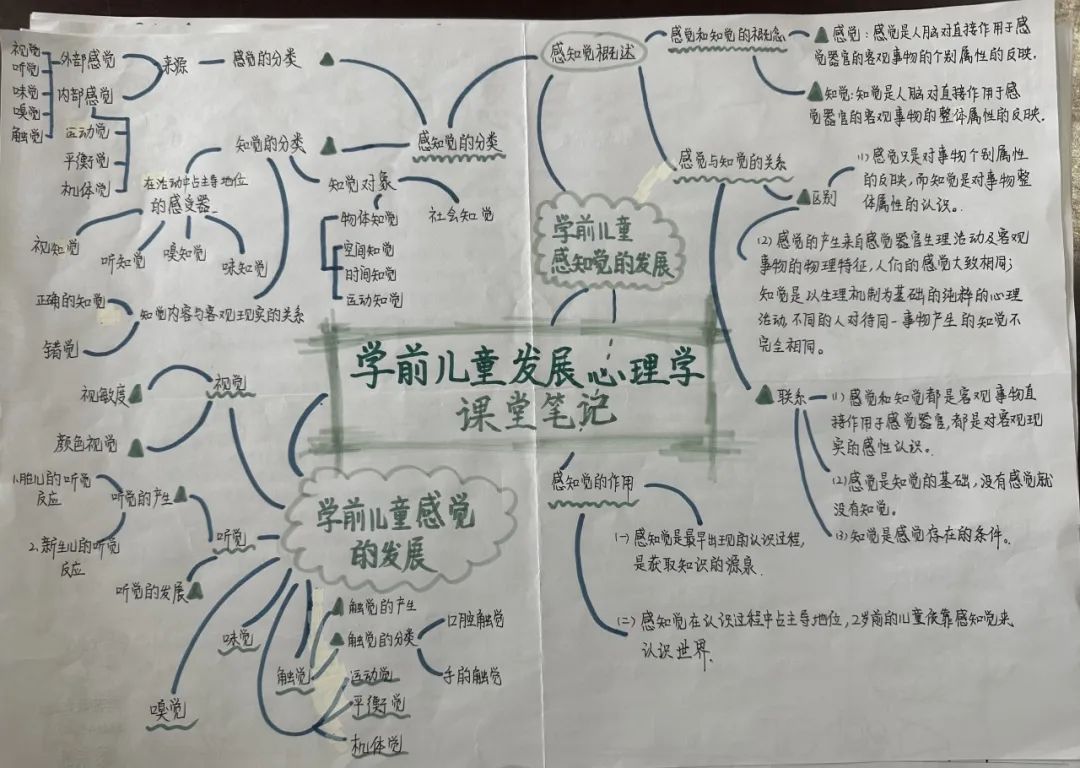 学前儿童发展心理学
课堂笔记
学前儿童
感知觉的发展
感知觉概述
感觉和知觉的概念
感觉：感觉是人脑对直接作用于感
觉器官的客观事物的个别属性的反映.
知觉:知觉是人脑对直接作用于感
觉器官的客观事物的整体属性的反映.
感觉与知觉的关系
区别
(1) 感觉只是对事物个别属性
的反映,而知觉是对事物整
体属性的认识。
(2) 感觉的产生来自感觉器官生理活动及客观
事物的物理特征,人们的感觉大致相同;
知觉是以生理机制为基础的纯粹的心理
活动不同的人对待同一事物产生的知觉不
完全相同。
联系
(1) 感觉和知觉都是客观事物直
接作用于感觉器官,都是对客观现
实的感性认识。
(2) 感觉是知觉的基础,没有感觉就
没有知觉。
(3) 知觉是感觉存在的条件。
感知觉的分类
感觉的分类
来源
外部感觉
视觉
听觉
味觉
嗅觉
触觉
内部感觉
运动觉
平衡觉
机体觉
知觉的分类
在活动中占主导地位
的感受器
视知觉
听知觉
嗅知觉
味知觉
知觉对象
物体知觉
空间知觉
时间知觉
运动知觉
社会知觉
知觉内容与客观现实的关系
正确的知觉
错觉
感知觉的作用
(一) 感知觉是最早出现的认识过程,
是获取知识的源泉.
(二) 感知觉在认识过程中占主导地位,2岁前的儿童依靠感知觉来
认识世界.
学前儿童感觉
的发展
视觉
视敏度
颜色视觉
听觉
听觉的产生
1.胎儿的听觉
反应
2.新生儿的听觉
反应
听觉的发展
嗅觉
味觉
触觉
触觉的产生
触觉的分类
口腔触觉
手的触觉
运动觉
平衡觉
机体觉